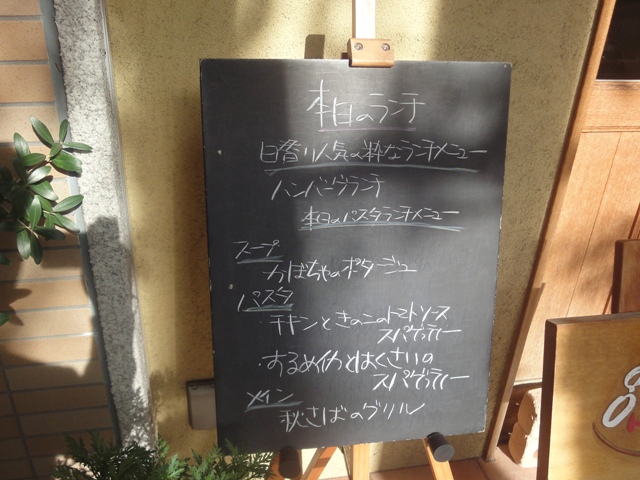 本日のランチ
日替り人気の粋なランチメニュー
ハンバーグランチ
本日のパスタランチメニュー
スープ
かぼちゃのポタージュ
パスタ
・チキンときのこのトマトソース
スパゲッティー
・するめイカとはくさいの
スパゲッティー
メイン
秋さばのグリル